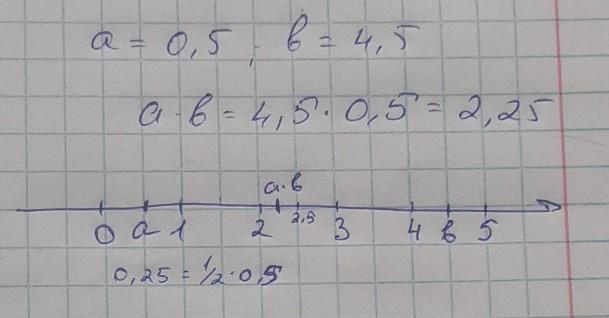 a = 0,5 ; в = 4,5
a · в = 4,5 · 0,5 = 2,25
a·в
0 a 1 2 2,5 3 4 в 5
0,25 = 1/2 · 0,5